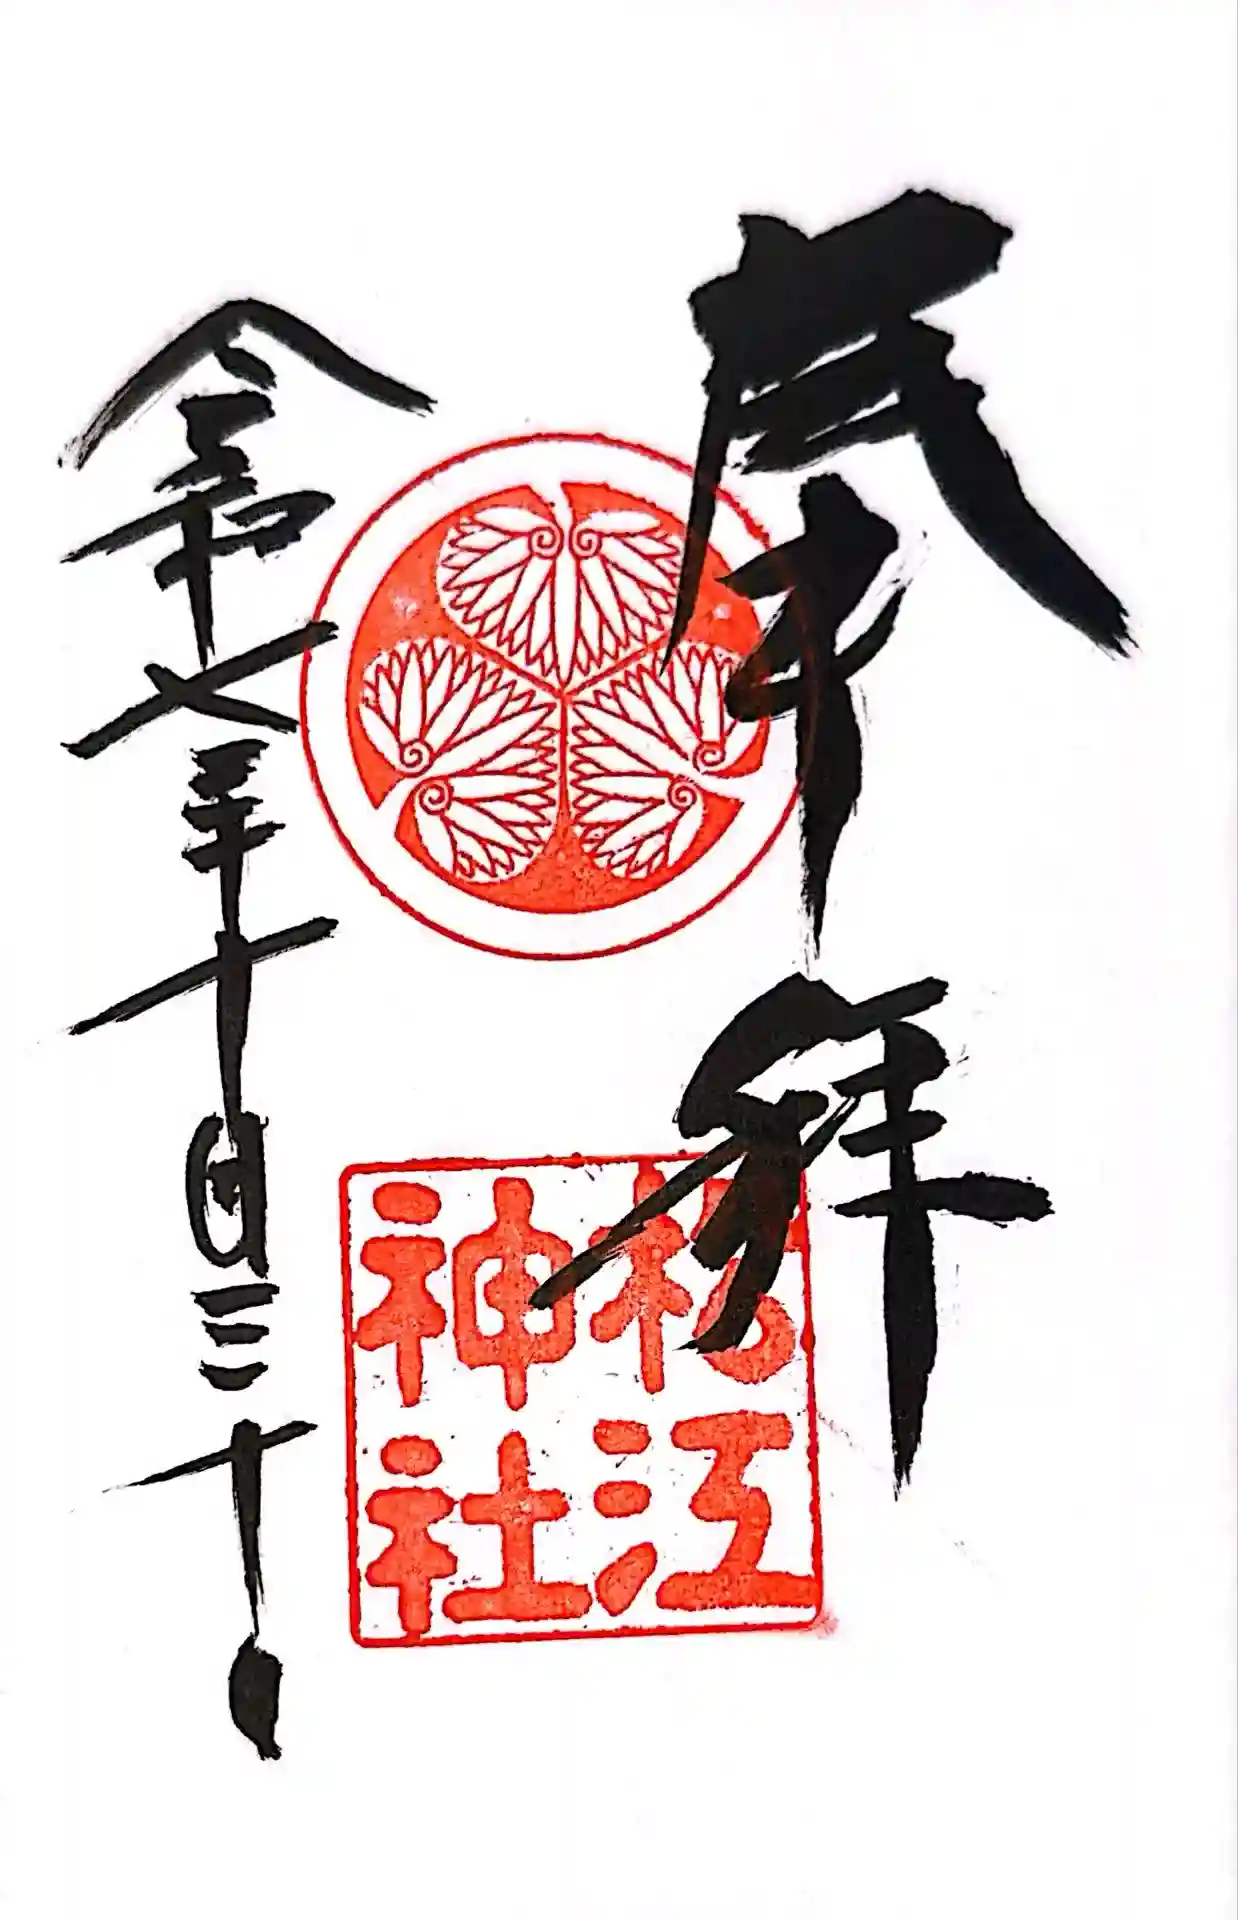 奉拝
松江
神社
令和七年十月三十日